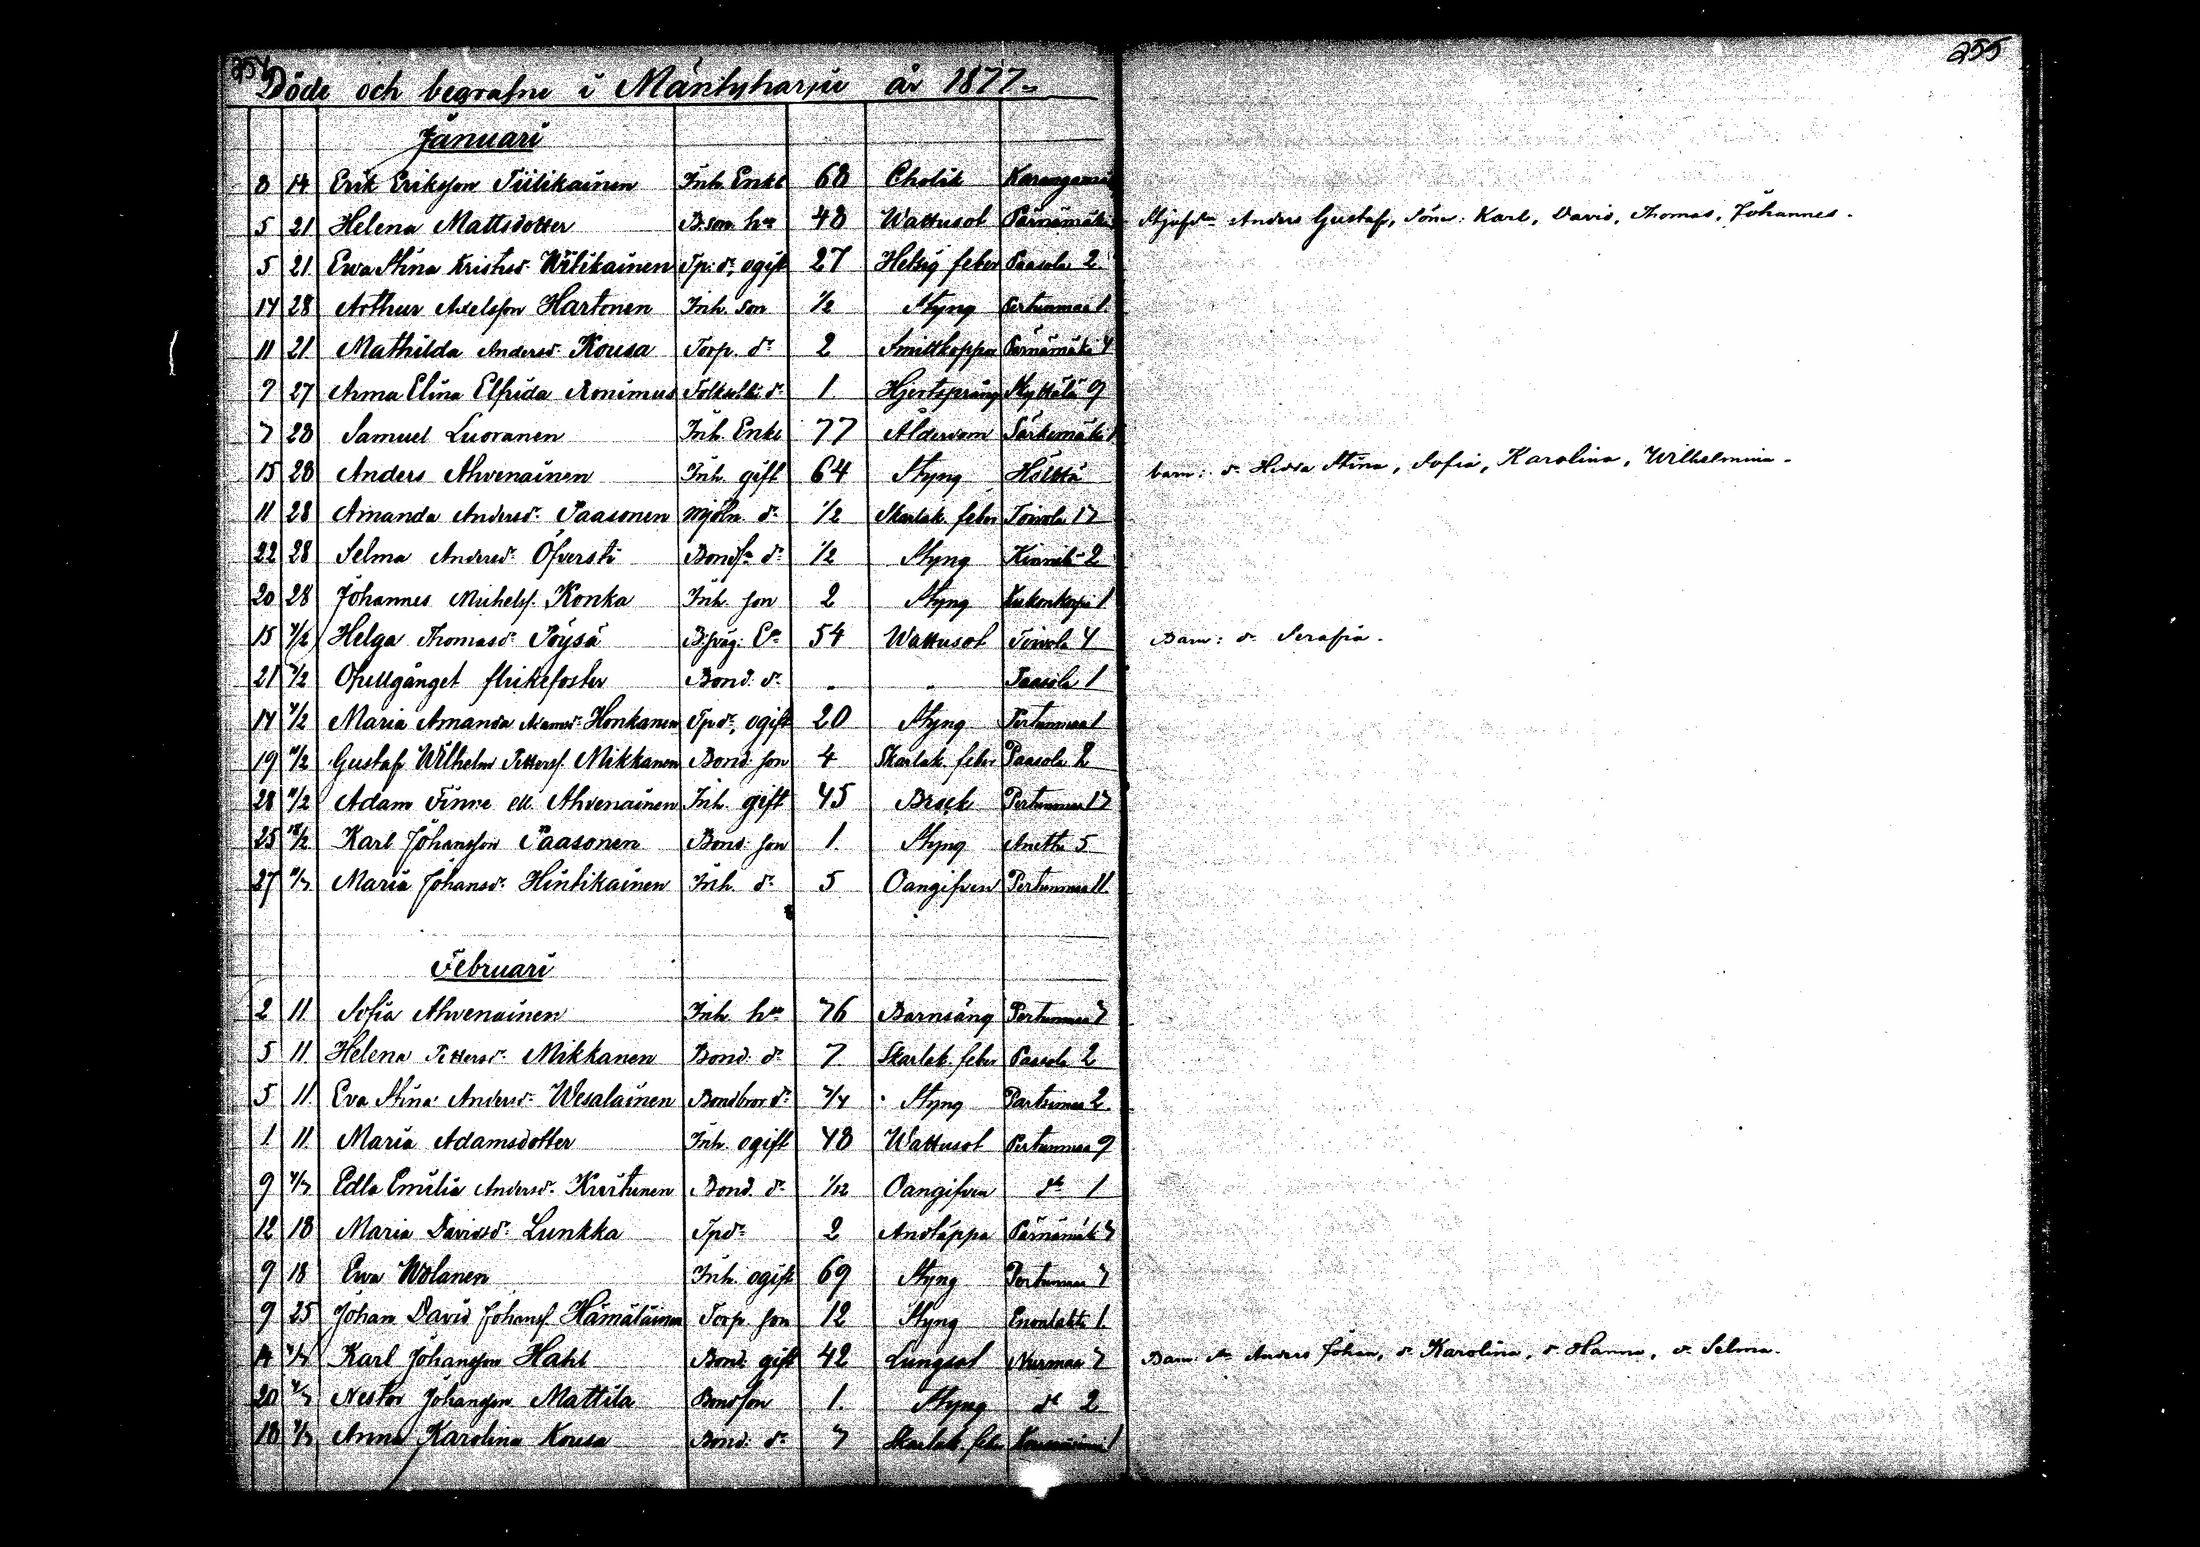 254
255
Döde och begrafne i Mäntyharju år 1877
Januari
8 14 Erik Eriksson Tiilikainen Inh. Enkl 68 Cholik
5 21 Helena Mattsdotter B.son. hu 48 Wattusot Pärnämäki Anders Gustaf, Söner: Karl, David, Thomas, Johannes.
5 21 Ewa Stina Kristesd. Wilikainen Tp. dr, ogift 27 Hetsig feber Paasola 2
14 28 Arthur Axelsson Hartonen Inh. son 1/2 Styng Pertunmaa 1
11 21 Mathilda Andersd. Kousa Torp. dr 2 Smittkoppor Pärnämäki 4
7 27 Anna Elina Elfrida Ronimus dr 1 Hjertsprång Kyttälä 9
7 28 Samuel Luoranen Inh. Enkl 77 Ålderdom Särkemäki
15 28 Anders Ahvenainen Inh. gift 64 Styng Hölttä barn: dr Hedda Stina, Sofia, Karolina, Wilhelmina.
11 28 Amanda Andersdr. Paasonen Mjöln. dr 1/2 Skarlak. feber Toivola 17
22 28 Selma Andersdr. Öfversti dr 1/2 Styng 2
20 28 Johannes Michelss. Konka Inh. son 2 Styng Kuckonkorpi 1
15 4/2 Helga Thomasdr. Pöysä 54 Wattusot Toivola 4 Barn: dr Serafia.
21 4/2 Ofullgånget flickefoster Bond. dr Paasola 1
14 4/2 Maria Amanda Adamsdr. Honkanen Tpdr, ogift 20 Styng Pertunmaa 1
19 11/2 Gustaf Wilhelm Petterss. Mikkanen Bond. son 4 Skarlak. feber Paasola 2
28 11/2 Adam Finne ell. Ahvenainen Inh. gift 45 Bråck Pertunmaa 17
25 18/2 Karl Johansson Paasonen Bond. son 1 Styng Anetta 5
27 Maria Johansdr. Hintikainen Inh. dr 5 Oangifven Pertunmaa 11
Februari
2 11 Sofia Ahvenainen Inh. hu 76 Barnsäng Pertunmaa 7
5 11 Helena Pettersdr. Mikkanen Bond. dr 7 Skarlak. feber Paasola 2
5 11 Eva Stina Andersdr. Wesalainen Bondbror dr 3/4 Styng Partsimaa 2
1 11 Maria Adamsdotter Inh. ogift 48 Wattusot Pertunmaa 9
9 4/3 Edla Emilia Andersdr. Kurtunen Bond. dr 1/12 Oangifven do 1
12 18 Maria Davidsdr. Lunkka Tpdr 2 Andtäppa Pärnämäki 7
9 18 Ewa Wolanen Inh. ogift 69 Styng Pertunmaa 7
9 25 Johan David Johanss. Hämäläinen Torp. son 12 Styng Enonlahti 1
14 Karl Johansson Hahl Bond. gift 42 Lungsot Nurmaa 7 Barn: Sn Anders Johan, dr Karolina, dr Hanna, dr Selma.
20 4/3 Nestor Johansson Mattila Bondson 1 Styng do 2
18 4/3 Anna Karolina Kousa Bond. dr 7 Skarlak. feber